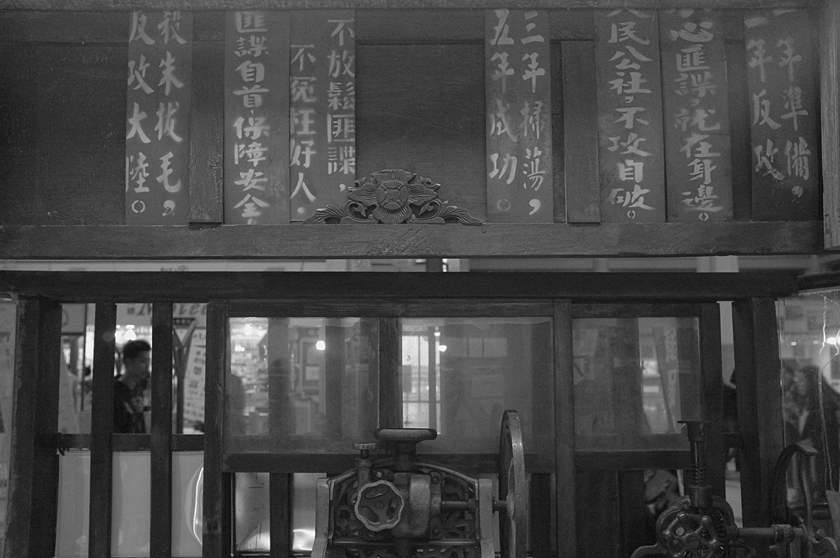 一年準備，
二年反攻
心匪諜，就在身邊。
人民公社，不攻自破。
三年掃蕩，
五年成功。
不放鬆匪諜，
不冤枉好人．
匪諜自首保障安全
殺朱拔毛，
反攻大陸。